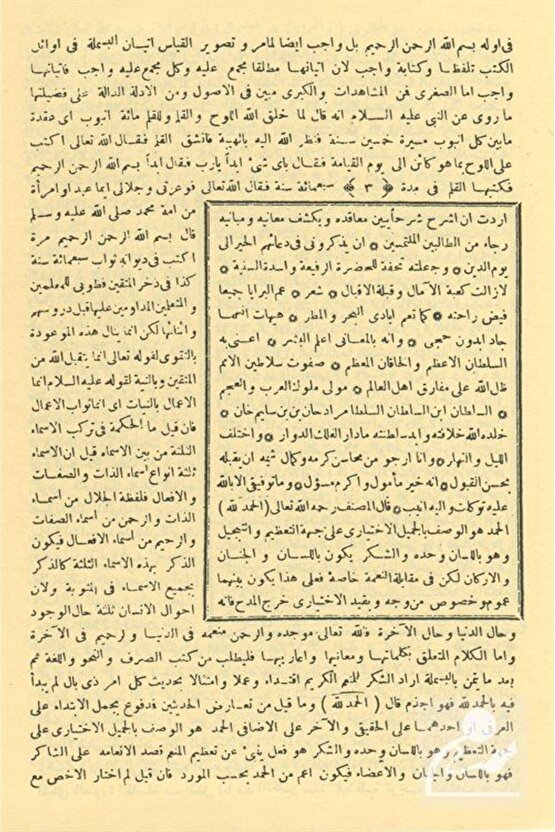 فى اوله بسم الله الرحمن الرحيم بل واجب ايضا لمامر و تصوير القياس اتيان البسملة فى اوائل
الكتب تلفظا وكتابة واجب لان اتيانها مطلقا مجمع عليه وكل مجمع عليه واجب فاتيانها
واجب اما الصغرى فن المشاهدات والكبرى مبين فى الاصول ومن الادلة الدالة على فضيلتها
ما روى عن النبى عليه السلام انه قال لما خلق الله اللوح والقلم وللقلم مائة انبوب اى عقدة
مابين كل انبوب مسيرة خمسين سنة فنظر الله اليه بالهيبة فانشق القلم فقال الله تعالى اكتب
على اللوح بما هو كائن الى يوم القيامة فقال باى شئ ابدأ يارب فقال ابدأ بسم الله الرحمن الرحيم
فكتبها القلم فى مدة ﴿ ٣ ﴾ سبعمائة سنة فقال الله تعالى فوعزتى وجلالى ايما عبد او امرأة
من امة محمد صلى الله عليه وسلم
قال بسم الله الرحمن الرحيم مرة
اكتب فى ديوانه ثواب سبعمائة سنة
كذا فى ذخر المتقين فطوبى للمعلمين
و المتعلمين المداومين عليها قبل دروسهم
واثنائها لكن انما ينال هذه الموعودة
بالتقوى لقوله تعالى انما يتقبل الله من
المتقين وبالنية لقوله عليه السلام انما
الاعمال بالنيات اى انما ثواب الاعمال
فان قيل ما الحكمة فى تركب الاسماء
الثلثة من بين الاسماء قيل ان الاسماء
ثلثة انواع اسماء الذات و الصفات
و الافعال فلفظة الجلال من اسماء
الذات و الرحمن من اسماء الصفات
و الرحيم من اسماء الافعال فيكون
الذكر بهذه الاسماء الثلثة كالذكر
بجميع الاسماء فى المثوبة ولان
احوال الانسان ثلثة حال الوجود
اردت ان اشرح شرحا يبين معاقده ويكشف معانيه ومبانيه
رجاء من الطالبين الملتمسين ۞ ان يذكرونى فى دعائهم الخير الى
يوم الدين ۞ وجعلته تحفة للحضرة الرفيعة والسدة السنية ۞
لازالت كعبة الآمال و قبلة الاقبال ۞ شعر ۞ عم البرايا جميعا
فيض راحته ۞ كما تعم ايادى البحر والمطر ۞ هيهات انهما
جادا بدون حجى ۞ وانه بالمعانى اعلم البشر ۞ اعنى به
السلطان الاعظم و الخاقان المعظم ۞ صفوت سلاطين الامم
ظل الله على مفارق اهل العالم ۞ مولى ملوك العرب و العجم
۞ السلطان ابن السلطان السلطان مراد خان بن سليم خان ۞
خلد الله خلافته وابد سلطنته مادار الفلك الدوار ۞ و اختلف
الليل والنهار ۞ وانا ارجو من محاسن كرمه وكمال شيمه ان يقبله
بحسن القبول ۞ انه خير مأمول واكرم مسؤل ۞ وما توفيقى الا بالله
عليه توكلت واليه انيب ۞ قال المصنف رحمه الله تعالى ( الحمد لله )
الحمد هو الوصف بالجميل الاختيارى على جهة التعظيم و التبجيل
و هو باللسان وحده و الشكر يكون باللسان و الجنان
و الاركان لكن فى مقابلة النعمة خاصة فعلى هذا يكون بينهما
عموم وخصوص من وجه و بقيد الاختيارى خرج المدح فانه
وحال الدنيا وحال الآخرة فالله تعالى موجده والرحمن منعمه فى الدنيا و الرحيم فى الآخرة
واما الكلام المتعلق بكلماتها ومعانيها واعاريبها فليطلب من كتب الصرف و النحو واللغة ثم
بعد ما تيمن بالبسملة اراد الشكر للمنعم الكريم اقتداء وعملا وامتثالا بحديث كل امر ذى بال لم يبدأ
فيه بالحمدلله فهو اجذم قال ( الحمدلله ) وما قيل من تعارض الحديثين فدفوع بحمل الابتداء على
العرفى او احدهما على الحقيقى و الآخر على الاضافى الحمد هو الوصف بالجميل الاختيارى على
جهة التعظيم وهو باللسان وحده و الشكر هو فعل ينبئ عن تعظيم المنعم قصد الانعامه على الشاكر
فهو باللسان والجنان و الاعضاء فيكون اعم من الحمد بحسب المورد فان قيل لم اختار الاخص مع